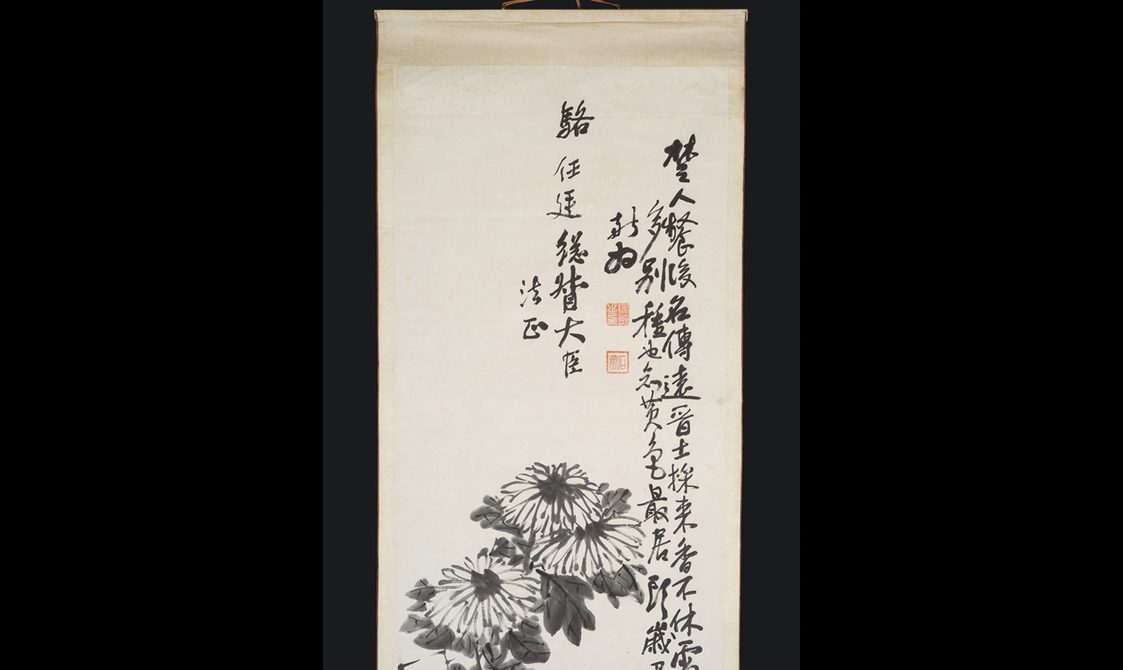 楚人餐後名傳遠晉士採來香不休
多別種也念黃色最居頭歲
為
駱任廷總督大臣
法正